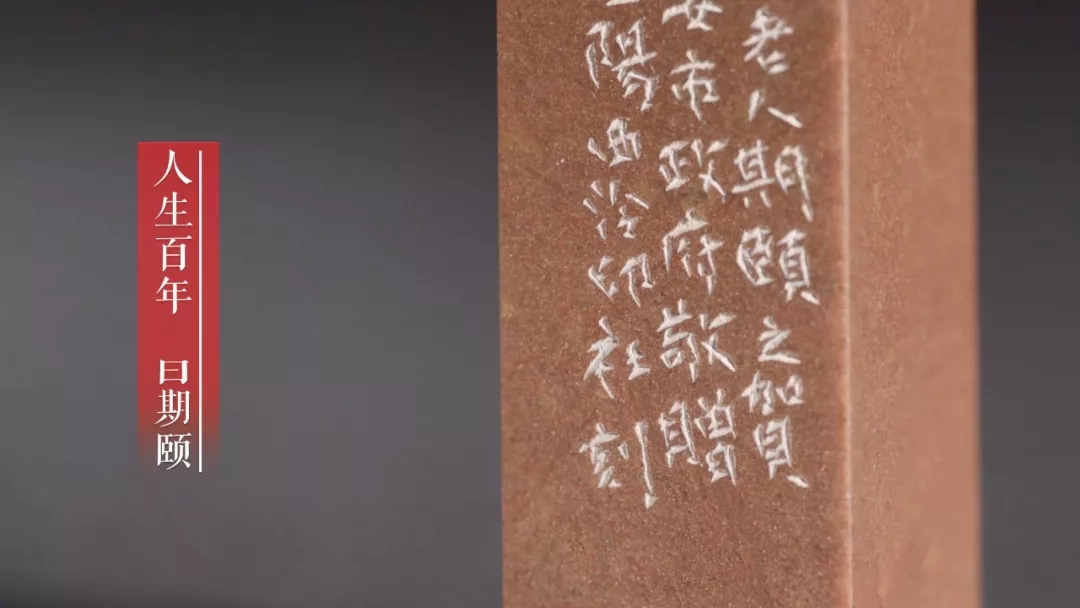 人生百年 曰期颐
老人期頤之賀
安市政府敬贈
陽西泠印社刻